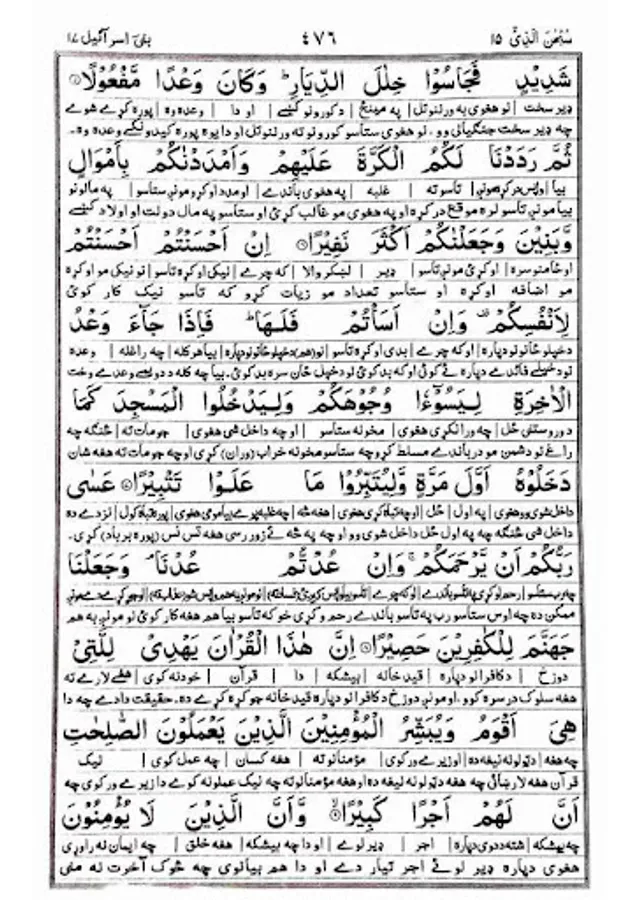 سبحٰن الذیٓ ۱۵ ۴۷۶ بنیٓ اسرآئیل ۱۷
شَدِيْدٍ فَجَاسُوْا خِلٰلَ الدِّيَارِ ؕ وَكَانَ وَعْدًا مَّفْعُوْلًا
ډیر سخت | نو هغوی به ورننوتل | په مینځ | د کورونو کښے | او دا | وعده وه | پوره کړے شوے
چه ډیر سخت جنګیالی وو، نو هغوی ستاسو کورونو ته ورننوتل او دا یوه پوره کیدونکے وعده وه۔
ثُمَّ رَدَدْنَا لَكُمُ الْكَرَّةَ عَلَيْهِمْ وَاَمْدَدْنٰكُمْ بِاَمْوَالٍ
بیا | تاسو ته | غلبه | په هغوی باندے | اومدد اوکړو مونږ ستاسو | په مالونو
بیا مونږ تاسو لره موقع درکړه او په هغوی مو غالب کړئ او ستاسو په مال دولت او اولاد کښے
وَّبَنِيْنَ وَجَعَلْنٰكُمْ اَكْثَرَ نَفِيْرًا اِنْ اَحْسَنْتُمْ اَحْسَنْتُمْ
او ځامنو سره | اوکړئ مونږ تاسو | ډیر | لښکر والا | که چرے | نیکی اوکړه تاسو | نو نیک مو اوکړه
مو اضافه اوکړه او ستاسو تعداد مو زیات کړو که تاسو نیک کار کوئ
لِاَنْفُسِكُمْ وَاِنْ اَسَاْتُمْ فَلَهَا ؕ فَاِذَا جَآءَ وَعْدُ
دخپلو ځانونو دپاره | اوکه چرے | بدی اوکړه تاسو | نو (هم) دخپلو ځانونو دپاره | بیا هرکله | چه راغله | وعده
نو دخپلے فائدے دپاره ئے کوئ اوکه بد کوئ نو دخپل ځان سره بد کوئ۔ بیا چه کله د دویمے وعدے وخت
الْاٰخِرَةِ لِيَسُوْٓءٗا وُجُوْهَكُمْ وَلِيَدْخُلُوا الْمَسْجِدَ كَمَا
چه ورانکړی هغوی | مخونه ستاسو | او چه داخل شی هغوی | جومات ته | څنګه چه
راغے نو دشمن مو درباندے مسلط کړو چه ستاسو مخونه خراب (وران) کړی او چه جومات ته هغه شان
دَخَلُوْهُ اَوَّلَ مَرَّةٍ وَّلِيُتَبِّرُوْا مَا عَلَوْا تَتْبِيْرًا عَسٰى
داخل شوی وو هغوی | په اول | ځل | او چه تباه کړی هغوی | هغه څه | | پوره تباه کول | نزدے ده
داخل شی څنګه چه په اول ځل داخل شوی وو او چه په څه ئے زور رسی هغه تس نس (پوره برباد) کړی۔
رَبُّكُمْ اَنْ يَّرْحَمَكُمْ ۚ وَاِنْ عُدْتُّمْ عُدْنَا ۘ وَجَعَلْنَا
چه رب ستاسو | رحم اوکړی په تاسو باندے | اوکه چرے
ممکن ده چه اوس ستاسو رب په تاسو باندے رحم وکړی خو که تاسو بیا هم هغه کار کوئ نو مونږ به هم
جَهَنَّمَ لِلْكٰفِرِيْنَ حَصِيْرًا اِنَّ هٰذَا الْقُرْاٰنَ يَهْدِيْ لِلَّتِيْ
دوزخ | دکافرانو دپاره | قیدخانه | بیشکه | دا | قرآن | خودنه کوی | هغے لارے ته
هغه سلوک درسره کوو، او مونږ دوزخ دکافرانو دپاره قیدخانه جوړ کړے ده۔ حقیقت دادے چه دا
هِيَ اَقْوَمُ وَيُبَشِّرُ الْمُؤْمِنِيْنَ الَّذِيْنَ يَعْمَلُوْنَ الصّٰلِحٰتِ
چه هغه | ډیوله نیغه ده | او زیرے ورکوی | مؤمنانو ته | هغه کسان | چه عمل کوی | نیک
قرآن هغه لار ښائی چه هغه ډیوله نیغه ده او هغه مؤمنانو ته چه نیک عملونه کوے دا زیرے ورکوی چه
اَنَّ لَهُمْ اَجْرًا كَبِيْرًا وَّاَنَّ الَّذِيْنَ لَا يُؤْمِنُوْنَ
چه بیشکه | شته ددوی دپاره | اجر | ډیر لوے | او دا چه بیشکه | هغه خلق | چه ایمان نه راوړی
هغوی دپاره ډیر لوئے اجر تیار دے او دا هم بیانوی چه څوک آخرت نه منی